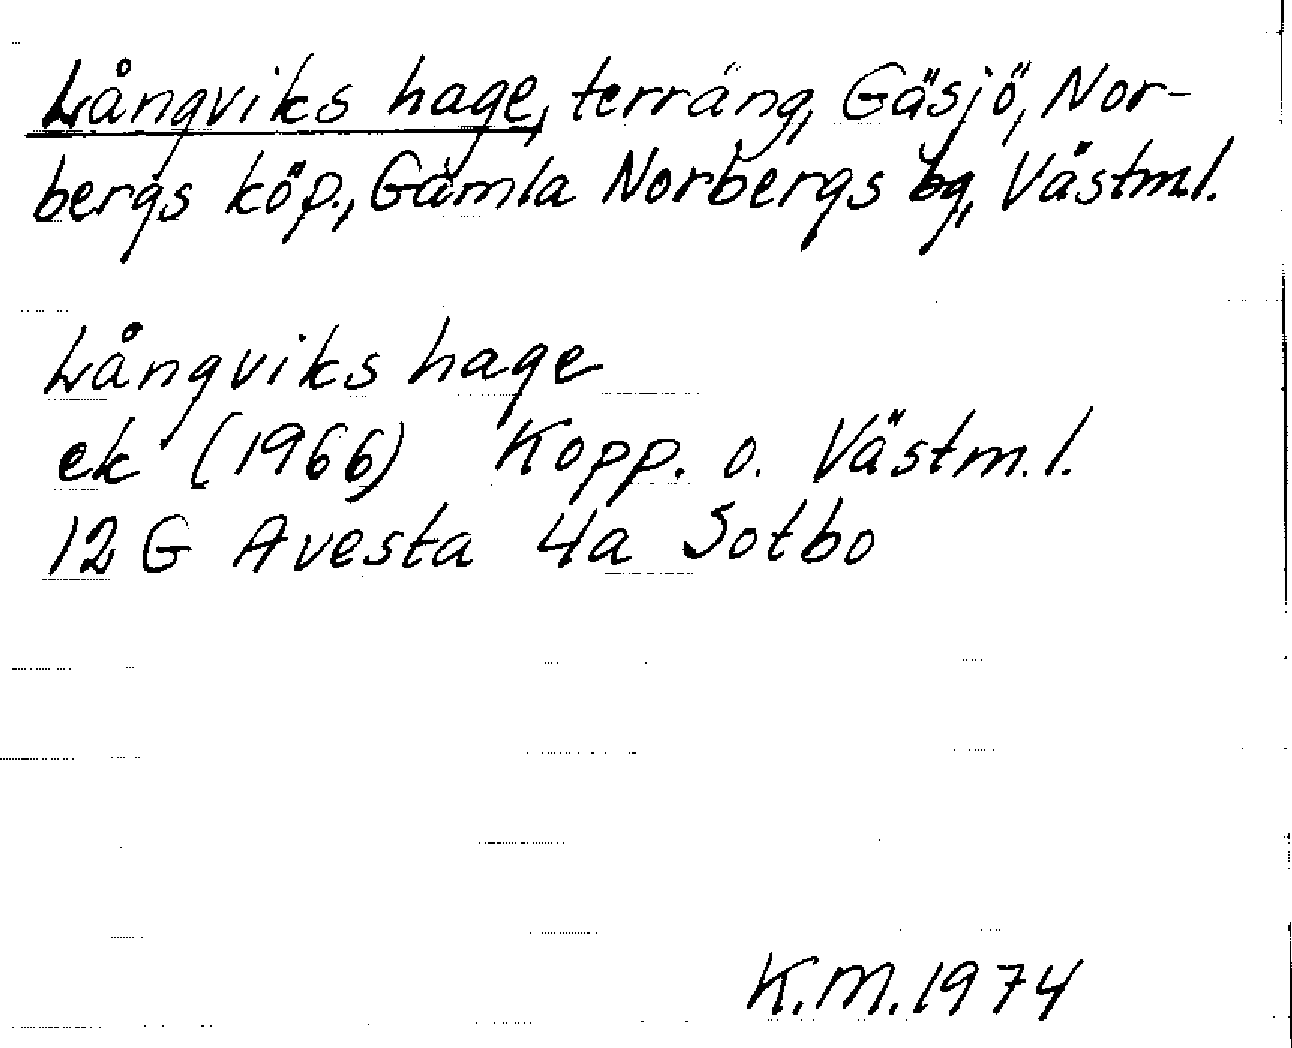 Långviks hage, terräng, Gäsjö, Nor-
bergs köp., Gamla Norbergs bg, Västml.
Långviks hage
ek (1966) Kopp. o. Västm.l.
12 G Avesta 4a Sotbo
K.M. 1974